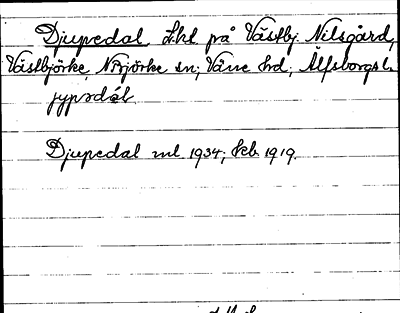 Djupedal Lht på Västbj. Nilsgård,
Västbjörke, N Björke sn; Väne hd; Älfsborgs l.
jypədál
Djupedal ml 1934; keb 1919.